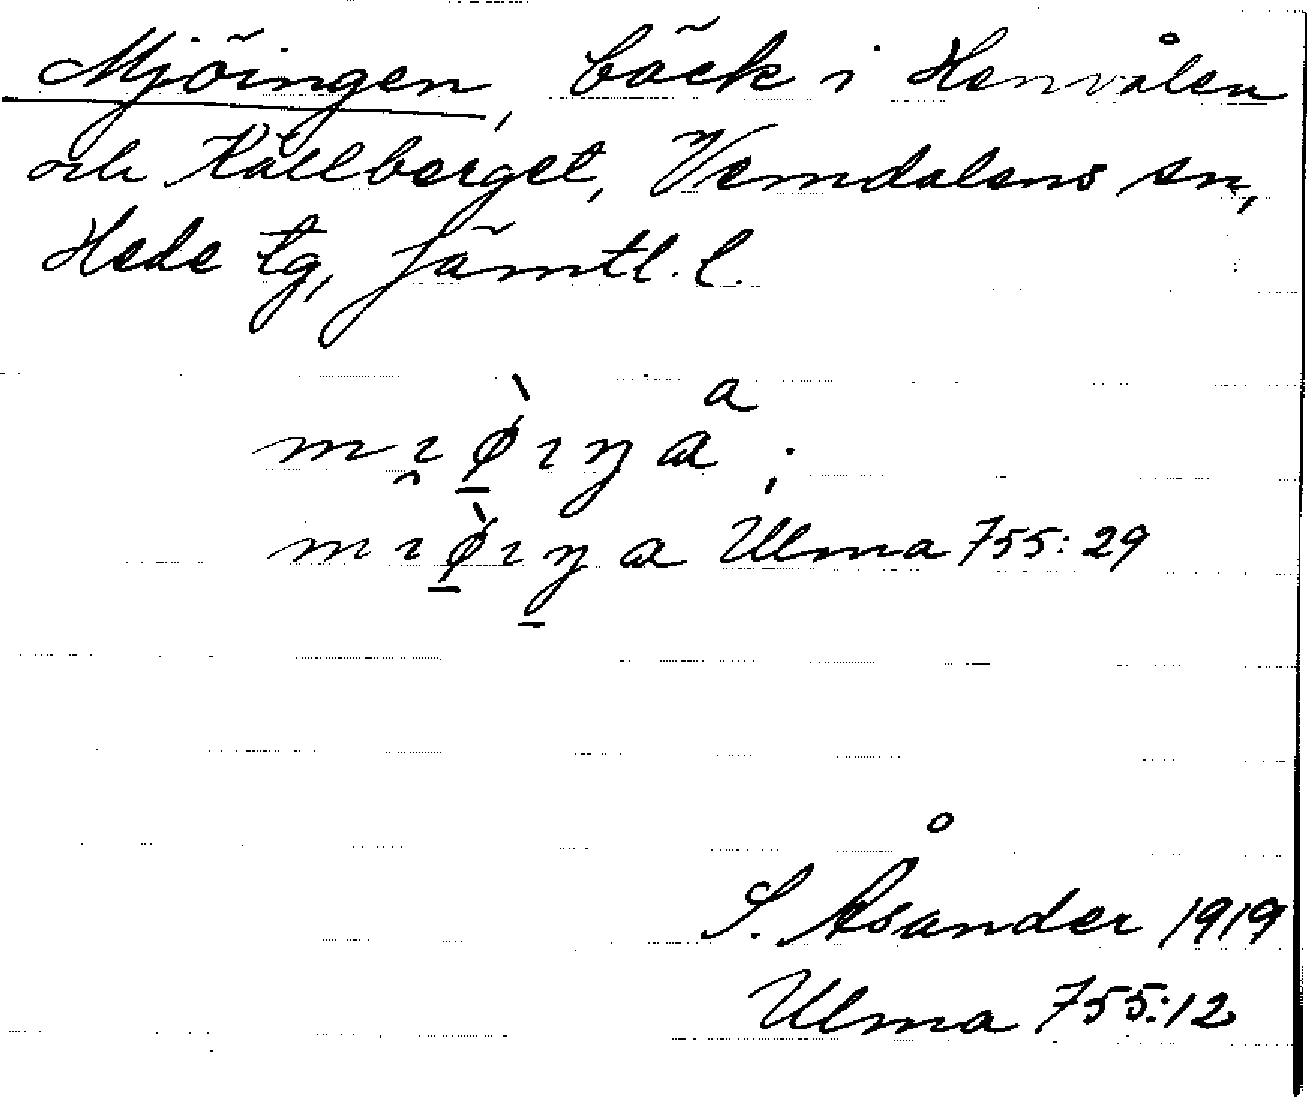 Mjöingen, bäck i Henvålen
och Källberget, Vemdalens sn,
Hede tg, Jämtl. l.
Ulma 755:29
S. Åsander 1919
Ulma 755:12